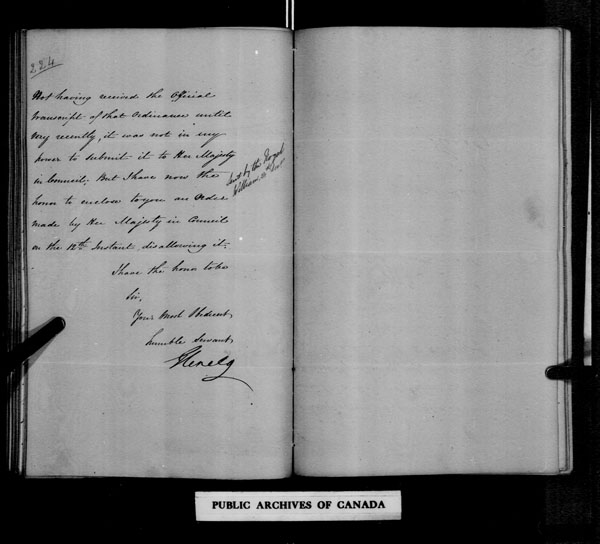 224
Not having received the Official
transcript of that Ordinance until
very recently, it was not in my
power to submit it to Her Majesty
in Council; But I have now the
honor to enclose to you an Order
made by Her Majesty in Council
on the 12th Instant disallowing it.
I have the honor to be
Sir,
Your Most Obedient
humble Servant
Glenelg
Sent by the Royal
William
PUBLIC ARCHIVES OF CANADA